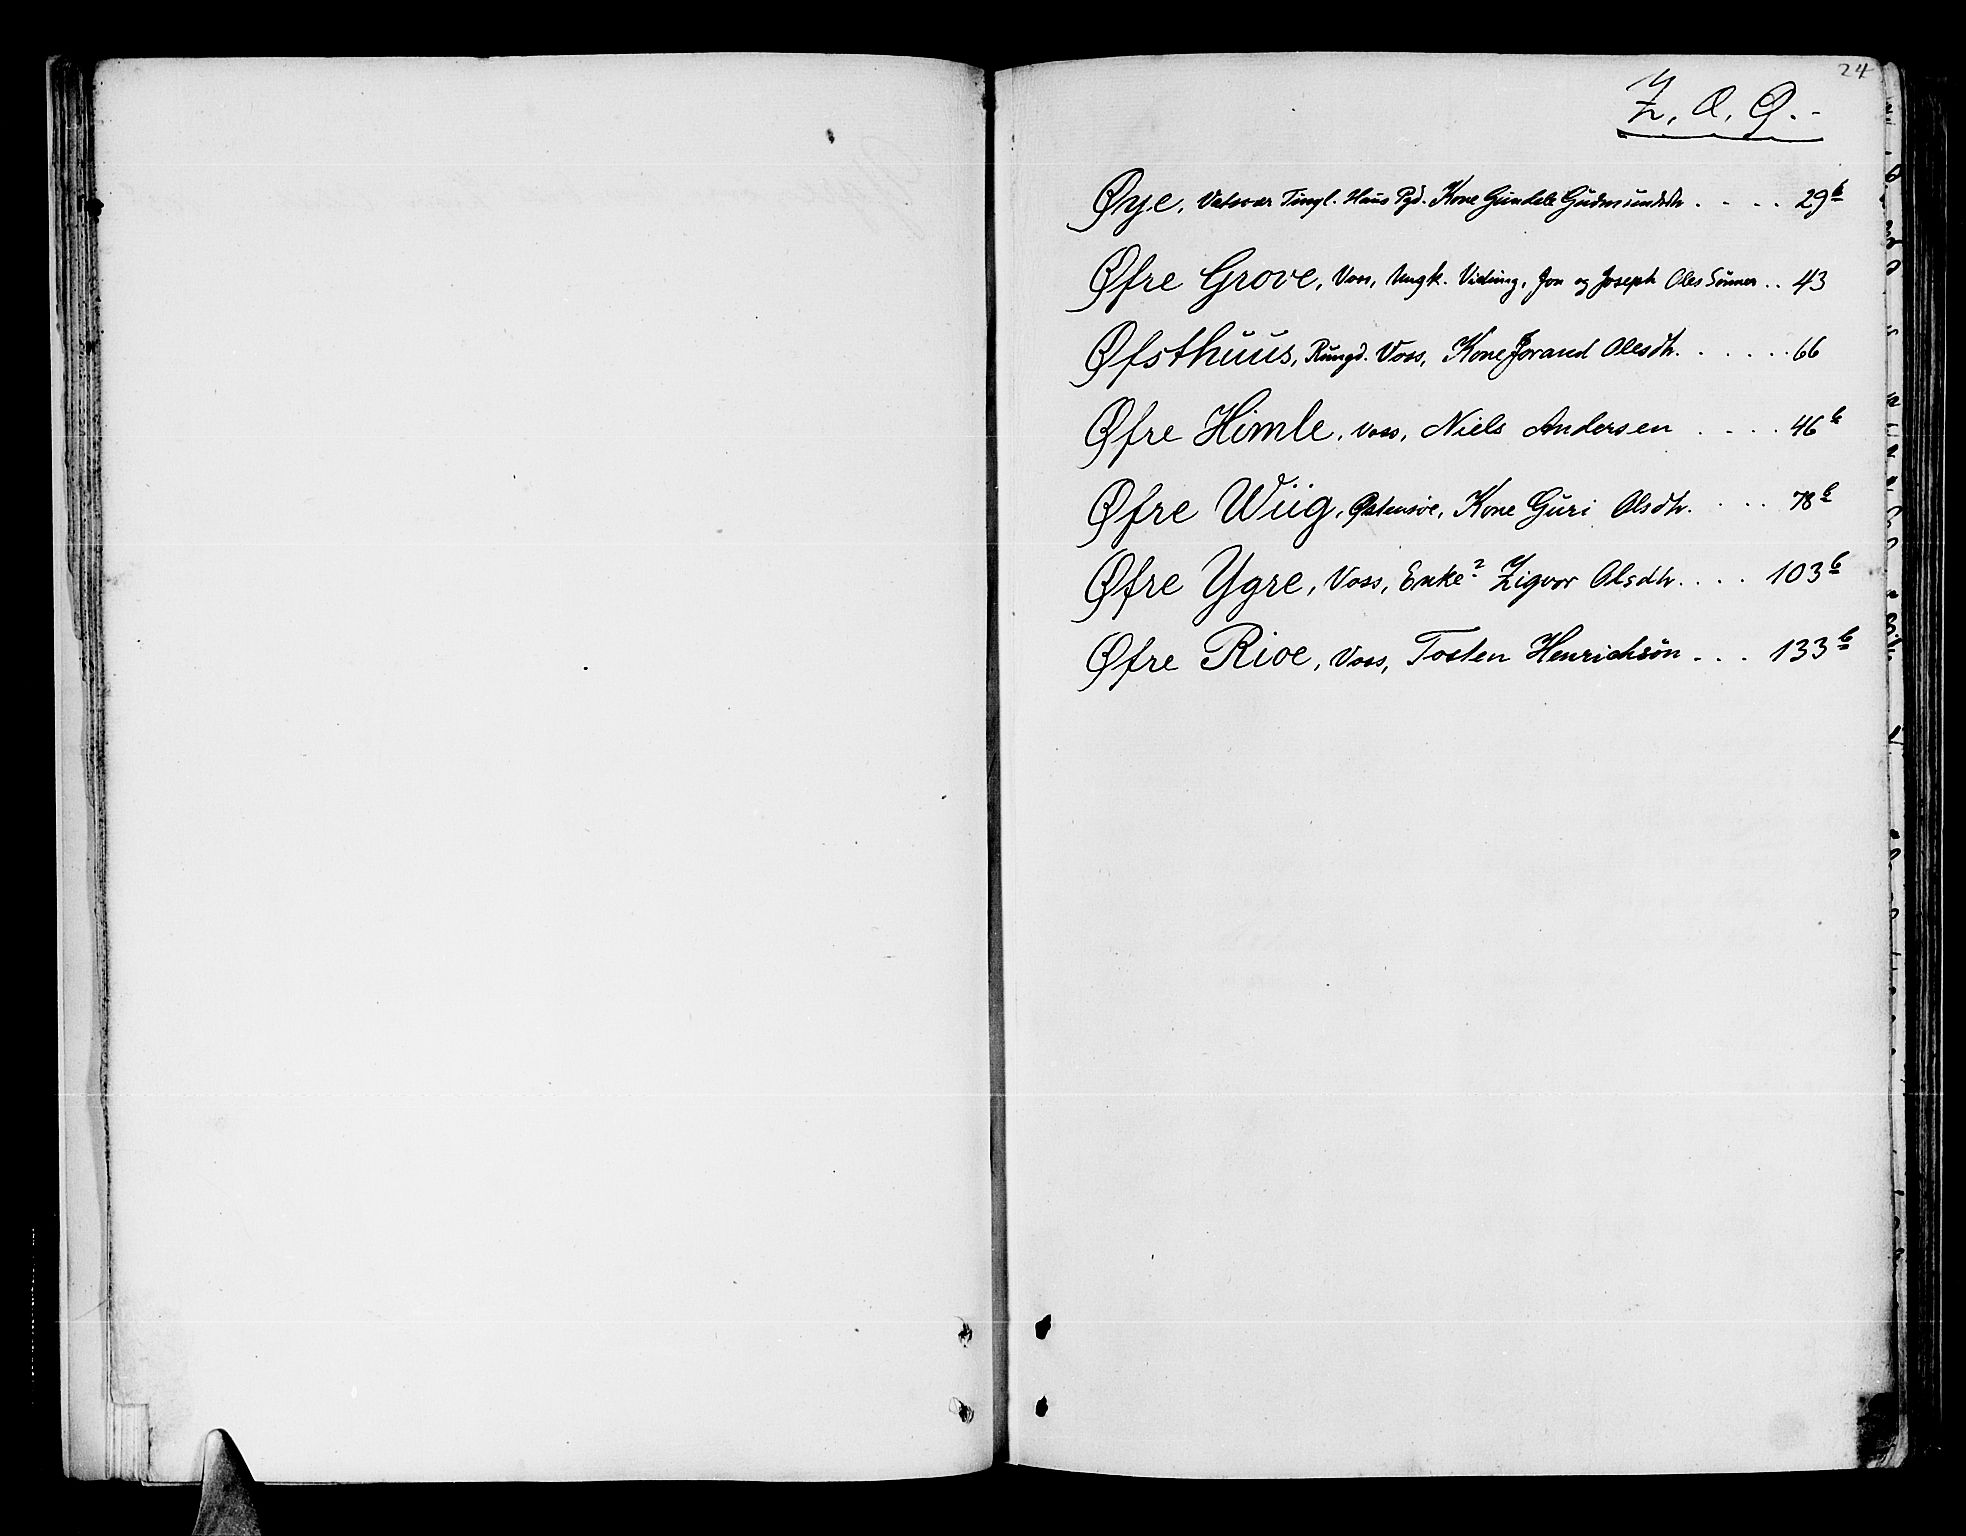 24
Z, Æ, Ø.-
Øye, Vatsvær Tingl. Haus Pgd. Kone Gundele Gudmundsdtr .... 29b
Øfre Grove, Voss, Ungk. Viching, Jon og Joseph Oles Sönner .. 43
Øfsthuus, Rungd. Voss, Kone Jorand Olesdtr. ..... 66
Øfre Himle, Voss, Niels Andersen .... 46b
Øfre Wiig, Østensöe, Kone Guri Olsdtr. ... 78b
Øfre Ygre, Voss, Enke? Zigvor Olsdtr. ... 103b
Øfre Rioe, Voss, Tosten Henrichsön ... 133b